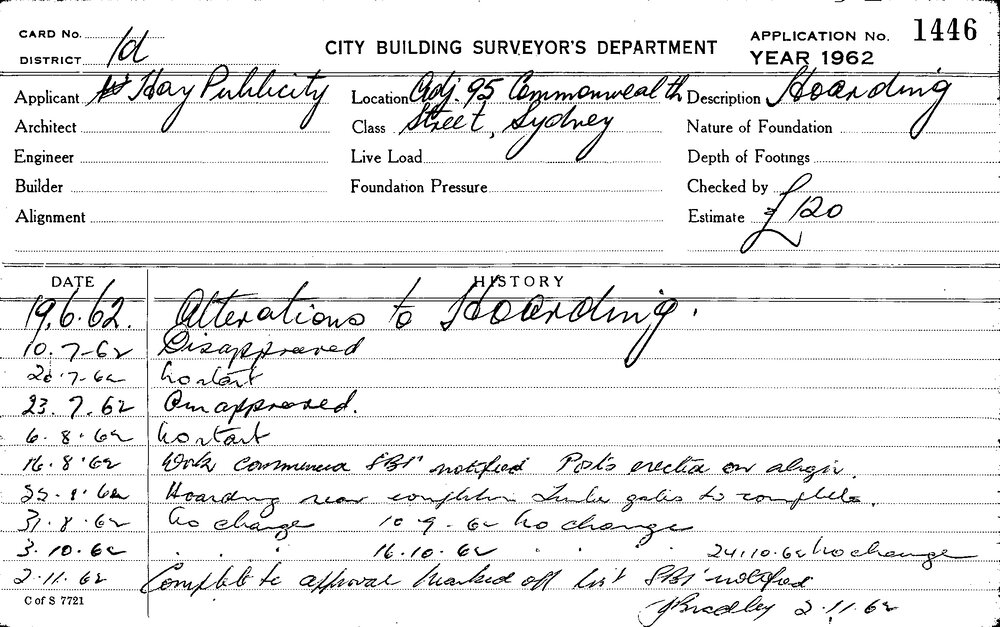 CARD No.
DISTRICT 1d
CITY BUILDING SURVEYOR'S DEPARTMENT
APPLICATION No. 1446
YEAR 1962
Applicant Hay Publicity
Location Adj. 95 Commonwealth
Description Hoarding
Architect
Class Street, Sydney
Nature of Foundation
Engineer
Live Load
Depth of Footings
Builder
Foundation Pressure
Checked by
Alignment
Estimate £120
DATE HISTORY
19.6.62. Alterations to Hoarding.
10.7-62 Disapproved
20.7.62 No start
23.7.62 approved.
6.8.62 No start
16.8.62 Work commenced SBI notified Posts erected on align.
Hoarding near completion gates to complete.
31.8.62 No change 10-9-62 No change
3.10.62 . . . 16.10.62 . . . 24.10.62 No change
2.11.62 Complete to approval Marked off list SBI notified
JBradley 2.11.62
C of S 7721